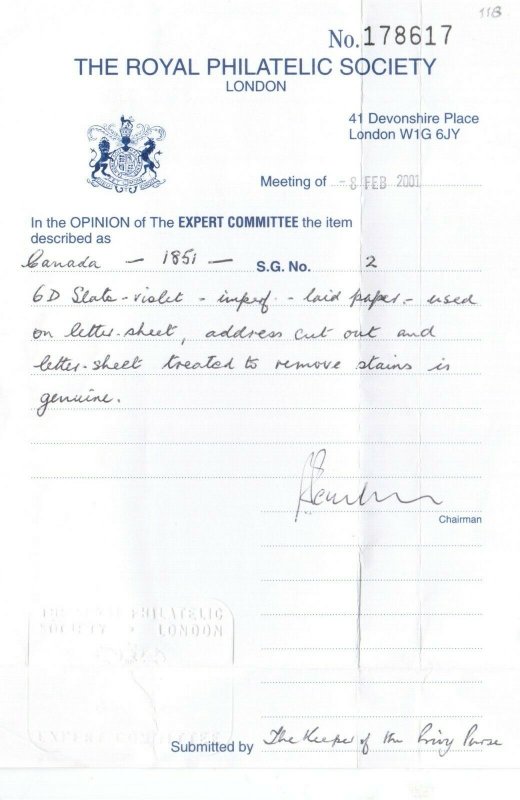 118
No. 178617
THE ROYAL PHILATELIC SOCIETY
LONDON
41 Devonshire Place
London W1G 6JY
Meeting of - 8 FEB 2001
In the OPINION of The EXPERT COMMITTEE the item
described as
Canada - 1851 - S.G. No. 2
6D Slate-violet - imperf - laid paper - used
on letter-sheet, address cut out and
letter-sheet treated to remove stains is
genuine.
Chairman
THE ROYAL PHILATELIC
SOCIETY • LONDON
EXPERT COMMITTEE
Submitted by The Keeper of the Privy Purse